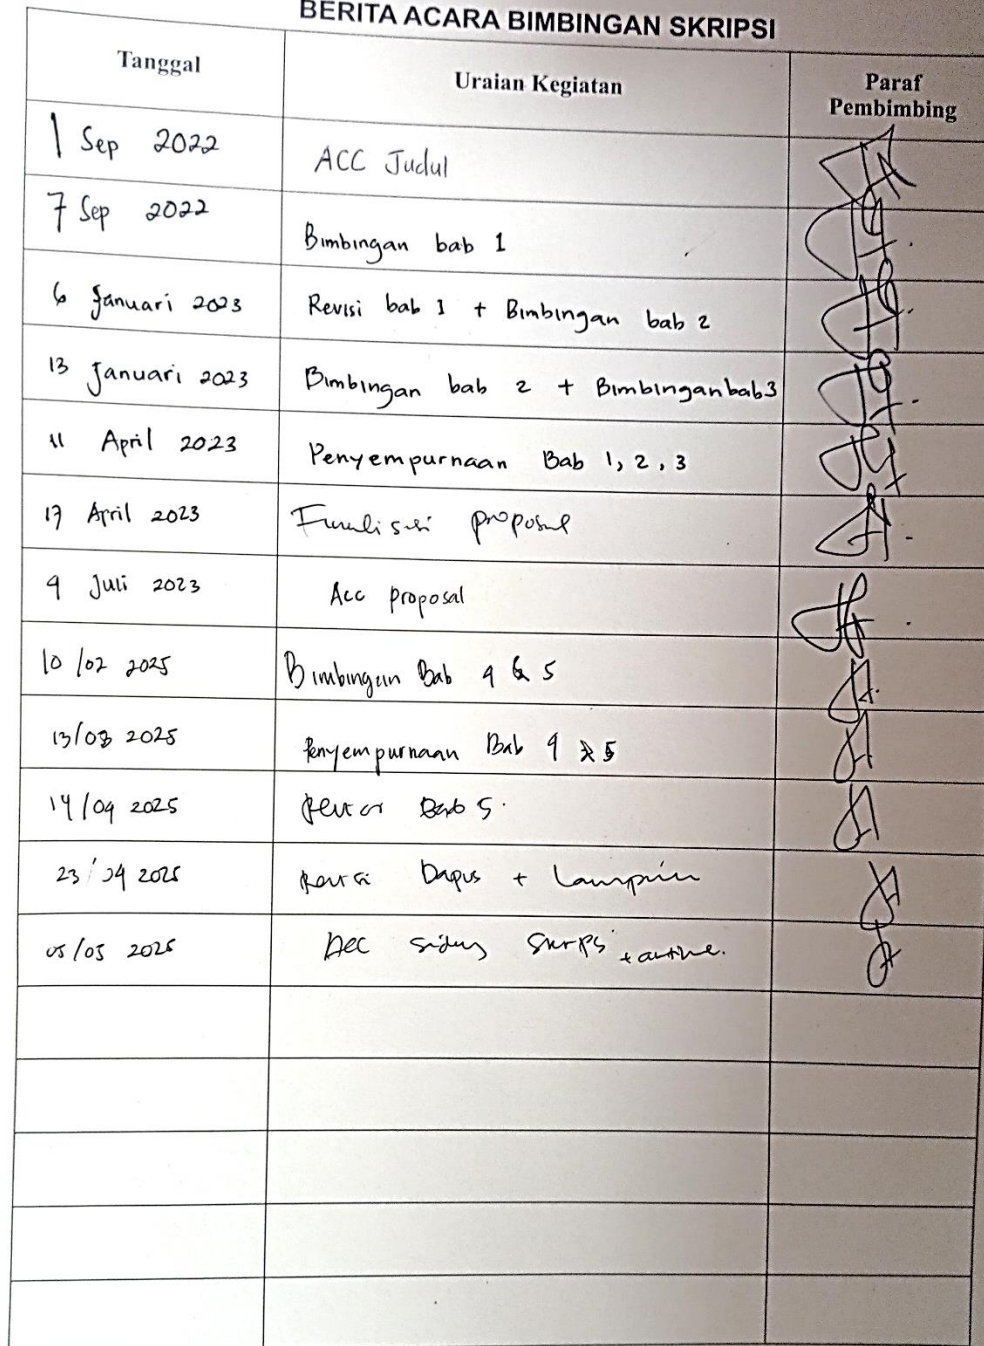 BERITA ACARA BIMBINGAN SKRIPSI
Tanggal Uraian Kegiatan Paraf Pembimbing
1 Sep 2022 ACC Judul
7 Sep 2022 Bimbingan bab 1
6 Januari 2023 Revisi bab 1 + Bimbingan bab 2
13 Januari 2023 Bimbingan bab 2 + Bimbingan bab 3
11 April 2023 Penyempurnaan Bab 1, 2, 3
17 April 2023 proposal
9 Juli 2023 Acc proposal
10/02 2025 Bimbingan Bab 4 & 5
13/03 2025 Penyempurnaan Bab 4 & 5
14/04 2025 Revisi Bab 5
23/04 2025 Revisi Dapus + Lampiran
05/05 2025 Acc sidang skripsi +